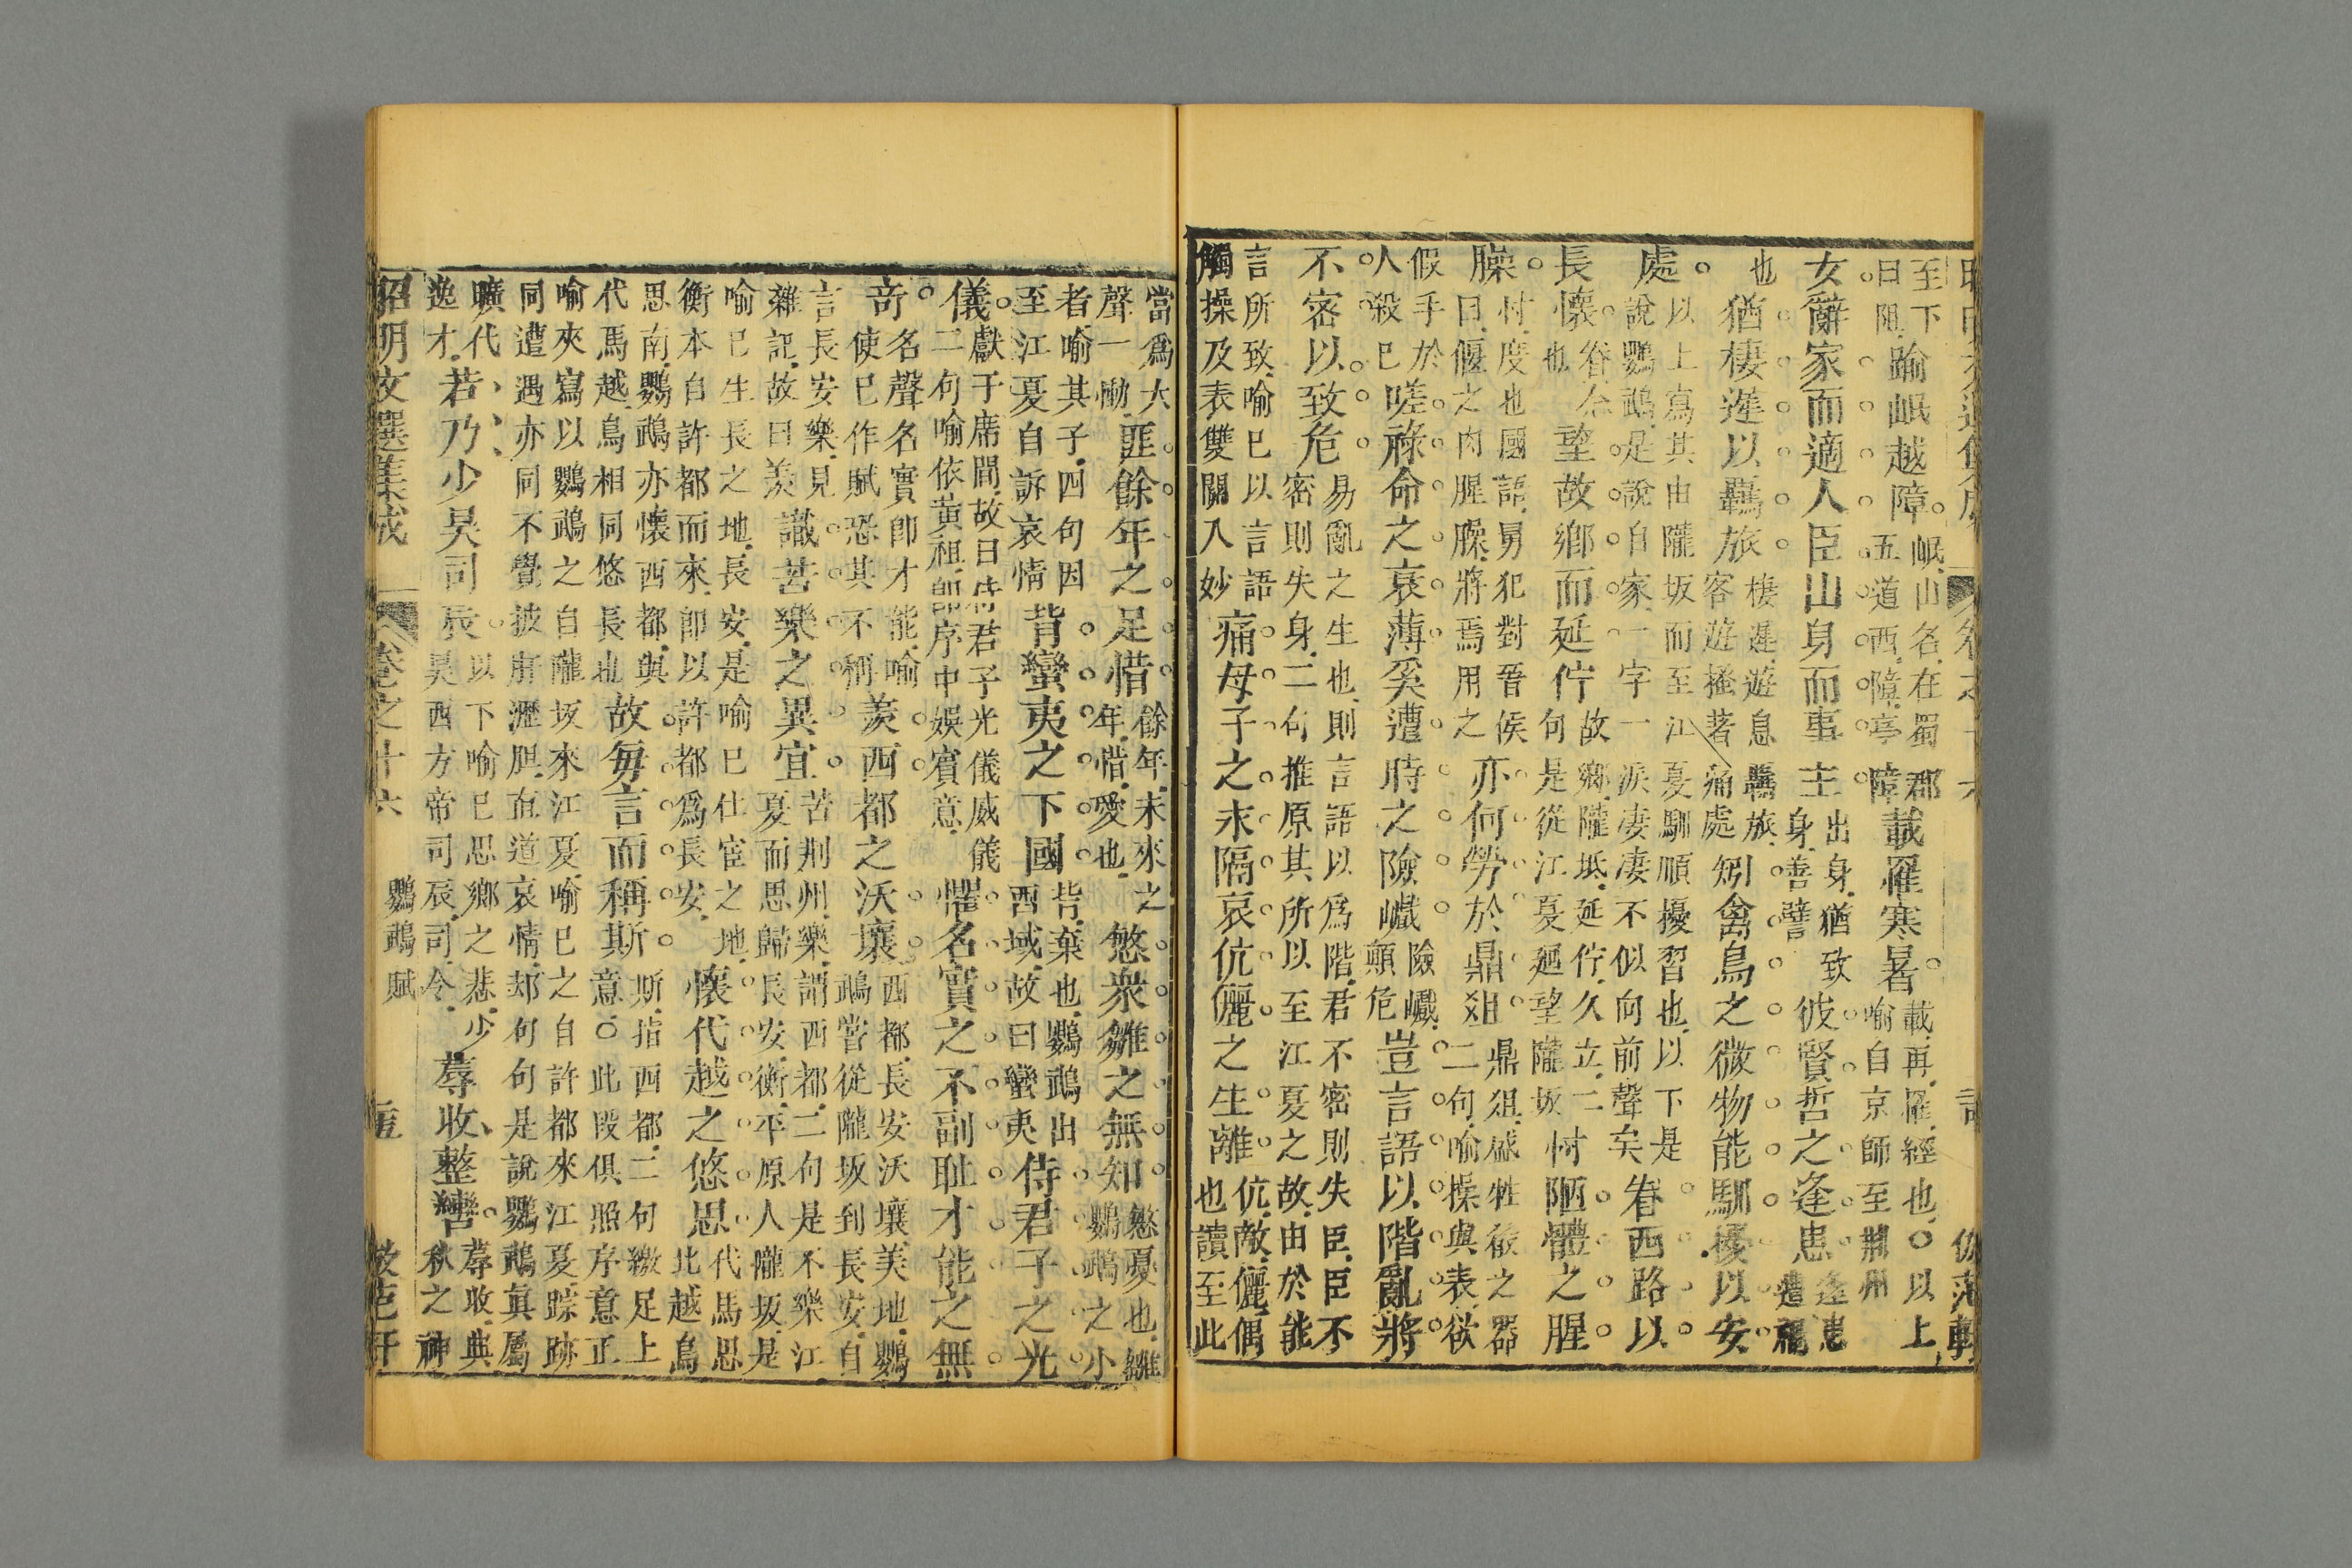 至下
曰阻踰岷越障岷山名在蜀郡
五道西障亭障載罹寒暑載再罹經也○以上
喻自京師至荊州
女辭家而適人臣出身而事主出身猶致
身善譬彼賢哲之逢患逢患
遭禍
也猶棲遲以羈旅棲遲遊息羈旅
客遊搔著痛處矧禽鳥之微物能馴擾以安
處以上寫其由隴坂而至江夏馴順擾習也以下是
說鸚鵡是說自家一字一淚凄凄不似向前聲矣眷西路以
長懷眷念
也望故鄉而延佇故鄉隴坻延佇久立二
句是從江夏廻望隴坂忖陋體之腥
臊忖度也國語舅犯對晉侯
曰偃之肉腥臊將焉用之亦何勞於鼎俎鼎俎盛牲幾之器
二句喻操與表欲
假手於
人殺己嗟祿命之衰薄奚遭時之險巇險巇
顛危豈言語以階亂將
不密以致危易亂之生也則言語以為階君不密則失臣臣不
密則失身二句推原其所以至江夏之故由於能
言所致喻已以言語
觸操及表雙關入妙痛母子之永隔哀伉儷之生離伉敵儷偶
也讀至此
當為大
聲一慟匪餘年之足惜餘年未來之
年惜愛也愍衆雛之無知愍憂也雛
鸚鵡之小
者喻其子四句因
至江夏自訴哀情背蠻夷之下國背棄也鸚鵡出
西域故曰蠻夷侍君子之光
儀獻于席間故曰侍君子光儀威儀
二句喻依黃祖卽序中娛賓意懼名實之不副耻才能之無
奇名聲名實卽才能喻
使已作賦恐其不稱羨西都之沃壤西都長安沃壤美地鸚
鵡嘗從隴坂到長安自
言長安樂見
雜記故曰羨識苦樂之異宜苦荊州樂謂西都二句是不樂江
夏而思歸長安衡平原人隴坂是
喻已生長之地長安是喻已仕宦之地
衡本自許都而來卽以許都為長安懷代越之悠思代馬思
北越鳥
思南鸚鵡亦懷西都與
代馬越鳥相同悠長也故每言而稱斯斯指西都二句繳足上
意○此段俱照序意正
喻夾寫以鸚鵡之自隴坂來江夏喻已之自許都來江夏踪跡
同遭遇亦同不覺披肝瀝胆直道哀情却句句是說鸚鵡真屬
曠代
逸才若乃少昊司辰以下喻已思鄉之悲少
昊西方帝司辰司令蓐收整轡蓐收典
秋之神
昭明文選集成
卷之十六
鸚鵡賦